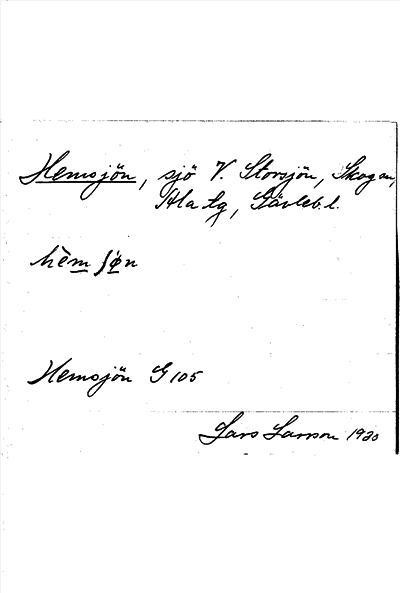 Hemsjön, sjö V. Storsjön, Skogan,
Ala sg, Gävleb. l.
hèm ʃøn
Hemsjön G 105
Lars Larsson 1920